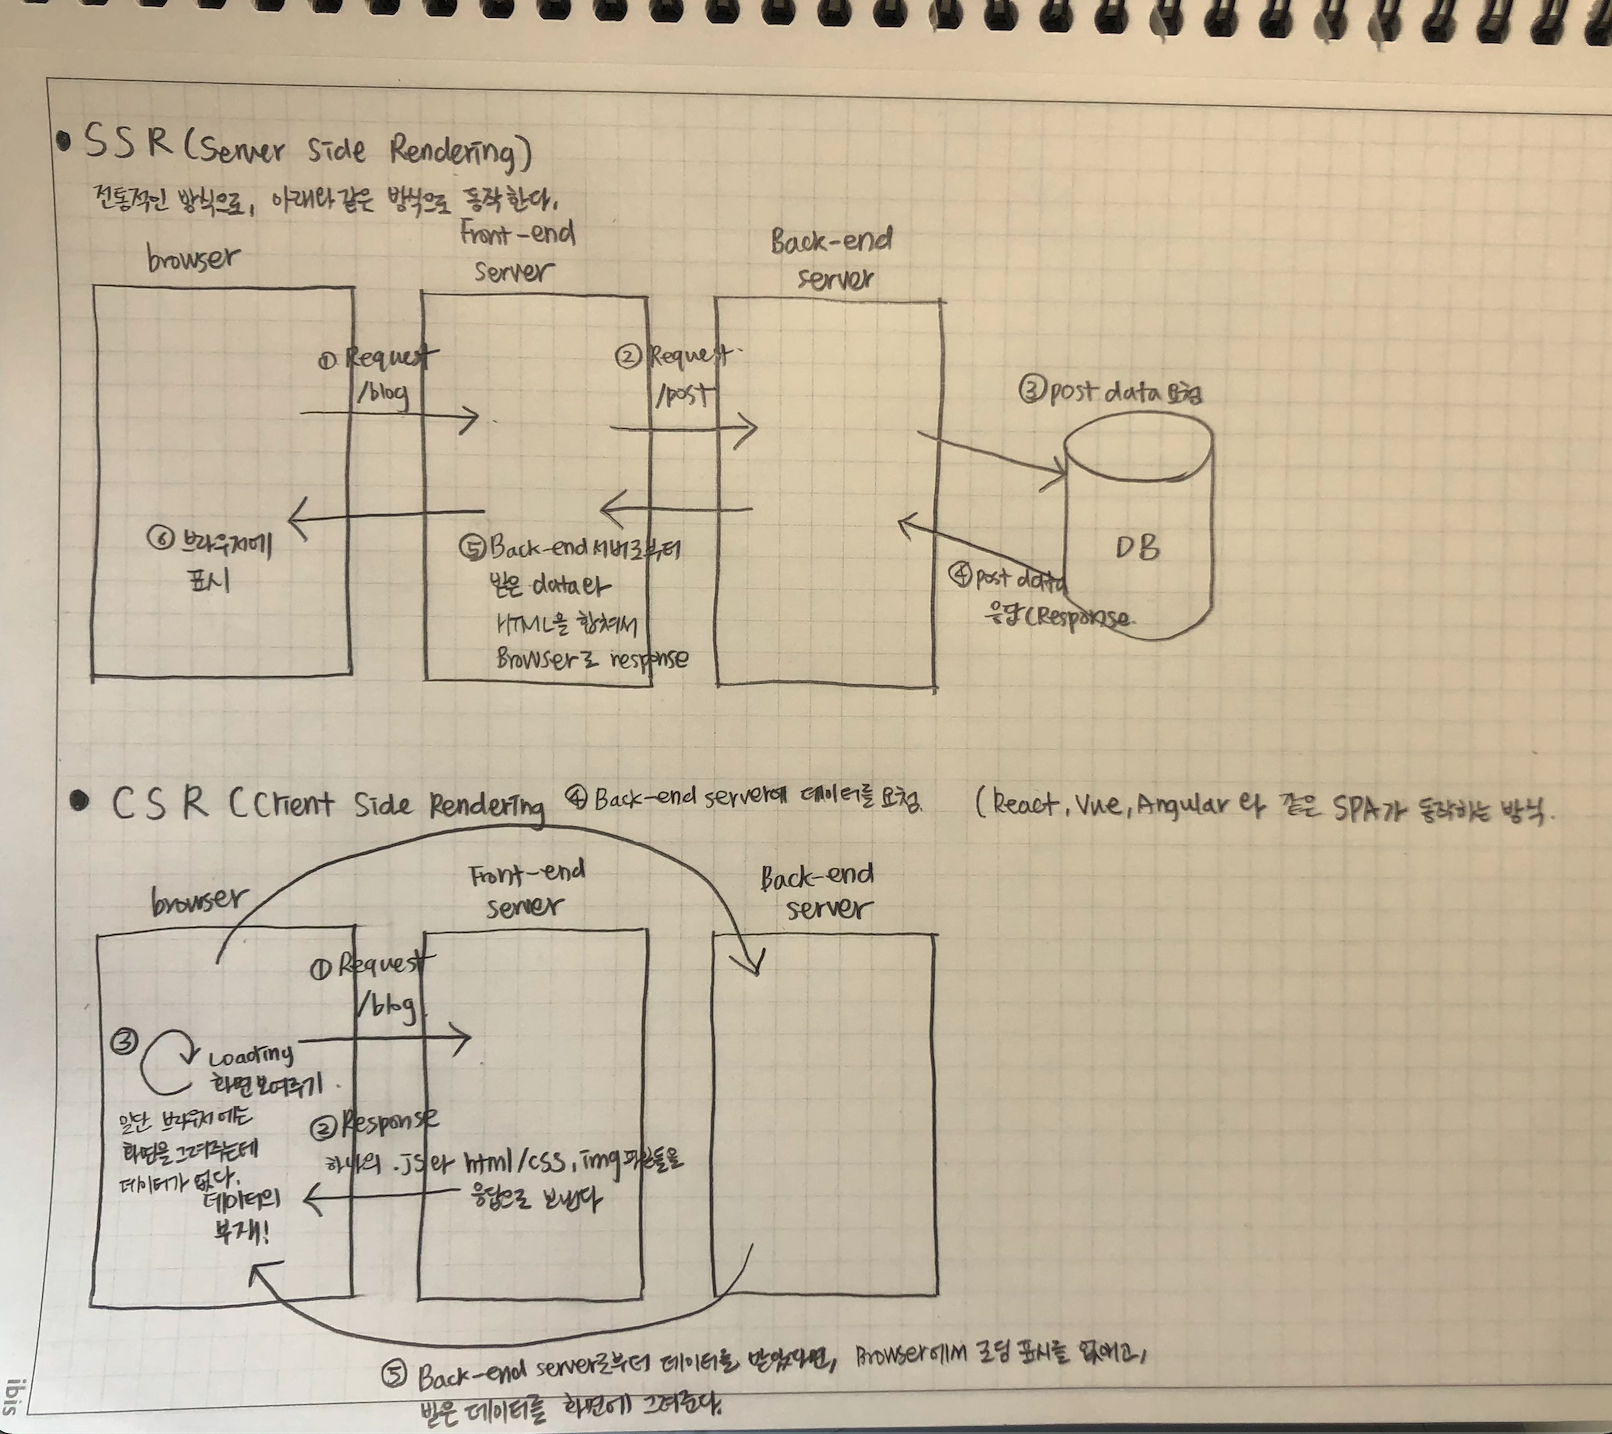 • SSR (Server Side Rendering)
전통적인 방식으로, 아래와 같은 방식으로 동작한다.
browser
Front-end
server
Back-end
server
① Request
/blog
② Request
/post
③ post data 요청
DB
④ post data
응답(Response
⑤ Back-end 서버로부터
받은 data와
HTML을 합쳐서
Browser로 response
⑥ 브라우저에
표시
• CSR (Client Side Rendering
④ Back-end server에 데이터를 요청.
(React, Vue, Angular 와 같은 SPA가 동작하는 방식.
browser
Front-end
server
Back-end
server
① Request
/blog
③
Loading
화면 보여주기.
일단 브라우저에는
화면을 그려주는데
데이터가 없다.
데이터의
부재!
② Response
하나의 .js와 html/css, img파일들을
응답으로 보낸다
⑤ Back-end server로부터 데이터를 받았다면, Browser에서 로딩 표시를 없애고,
받은 데이터를 화면에 그려준다.
ibis